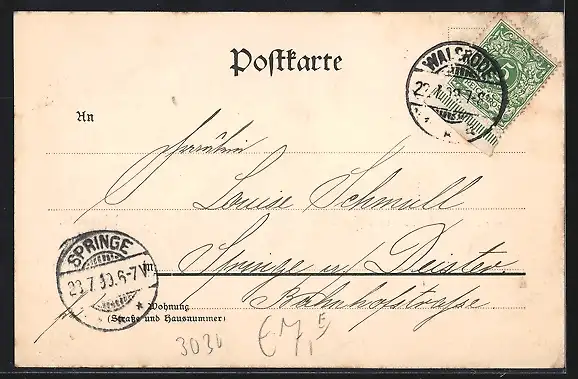 Postkarte
WALSRODE
5
An
Fräulein
Louise Schmull
Springe a/ Deister
in
Bahnhofstrasse
SPRINGE
23.7.00.6-7V
* Wohnung
(Straße und Hausnummer)
3030